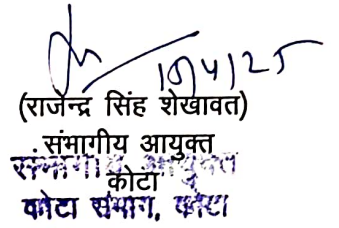 10/4/25
(राजेन्द्र सिंह शेखावत)
संभागीय आयुक्त
संभागीय आयुक्त
कोटा
कोटा संभाग, कोटा